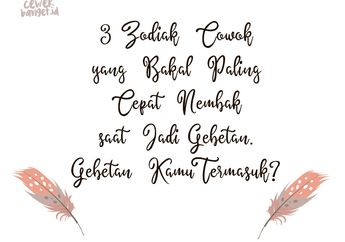 CEWEK
banget.id
3 Zodiak Cowok
yang Bakal Paling
Cepat Nembak
saat Jadi Gebetan.
Gebetan KamuTermasuk?